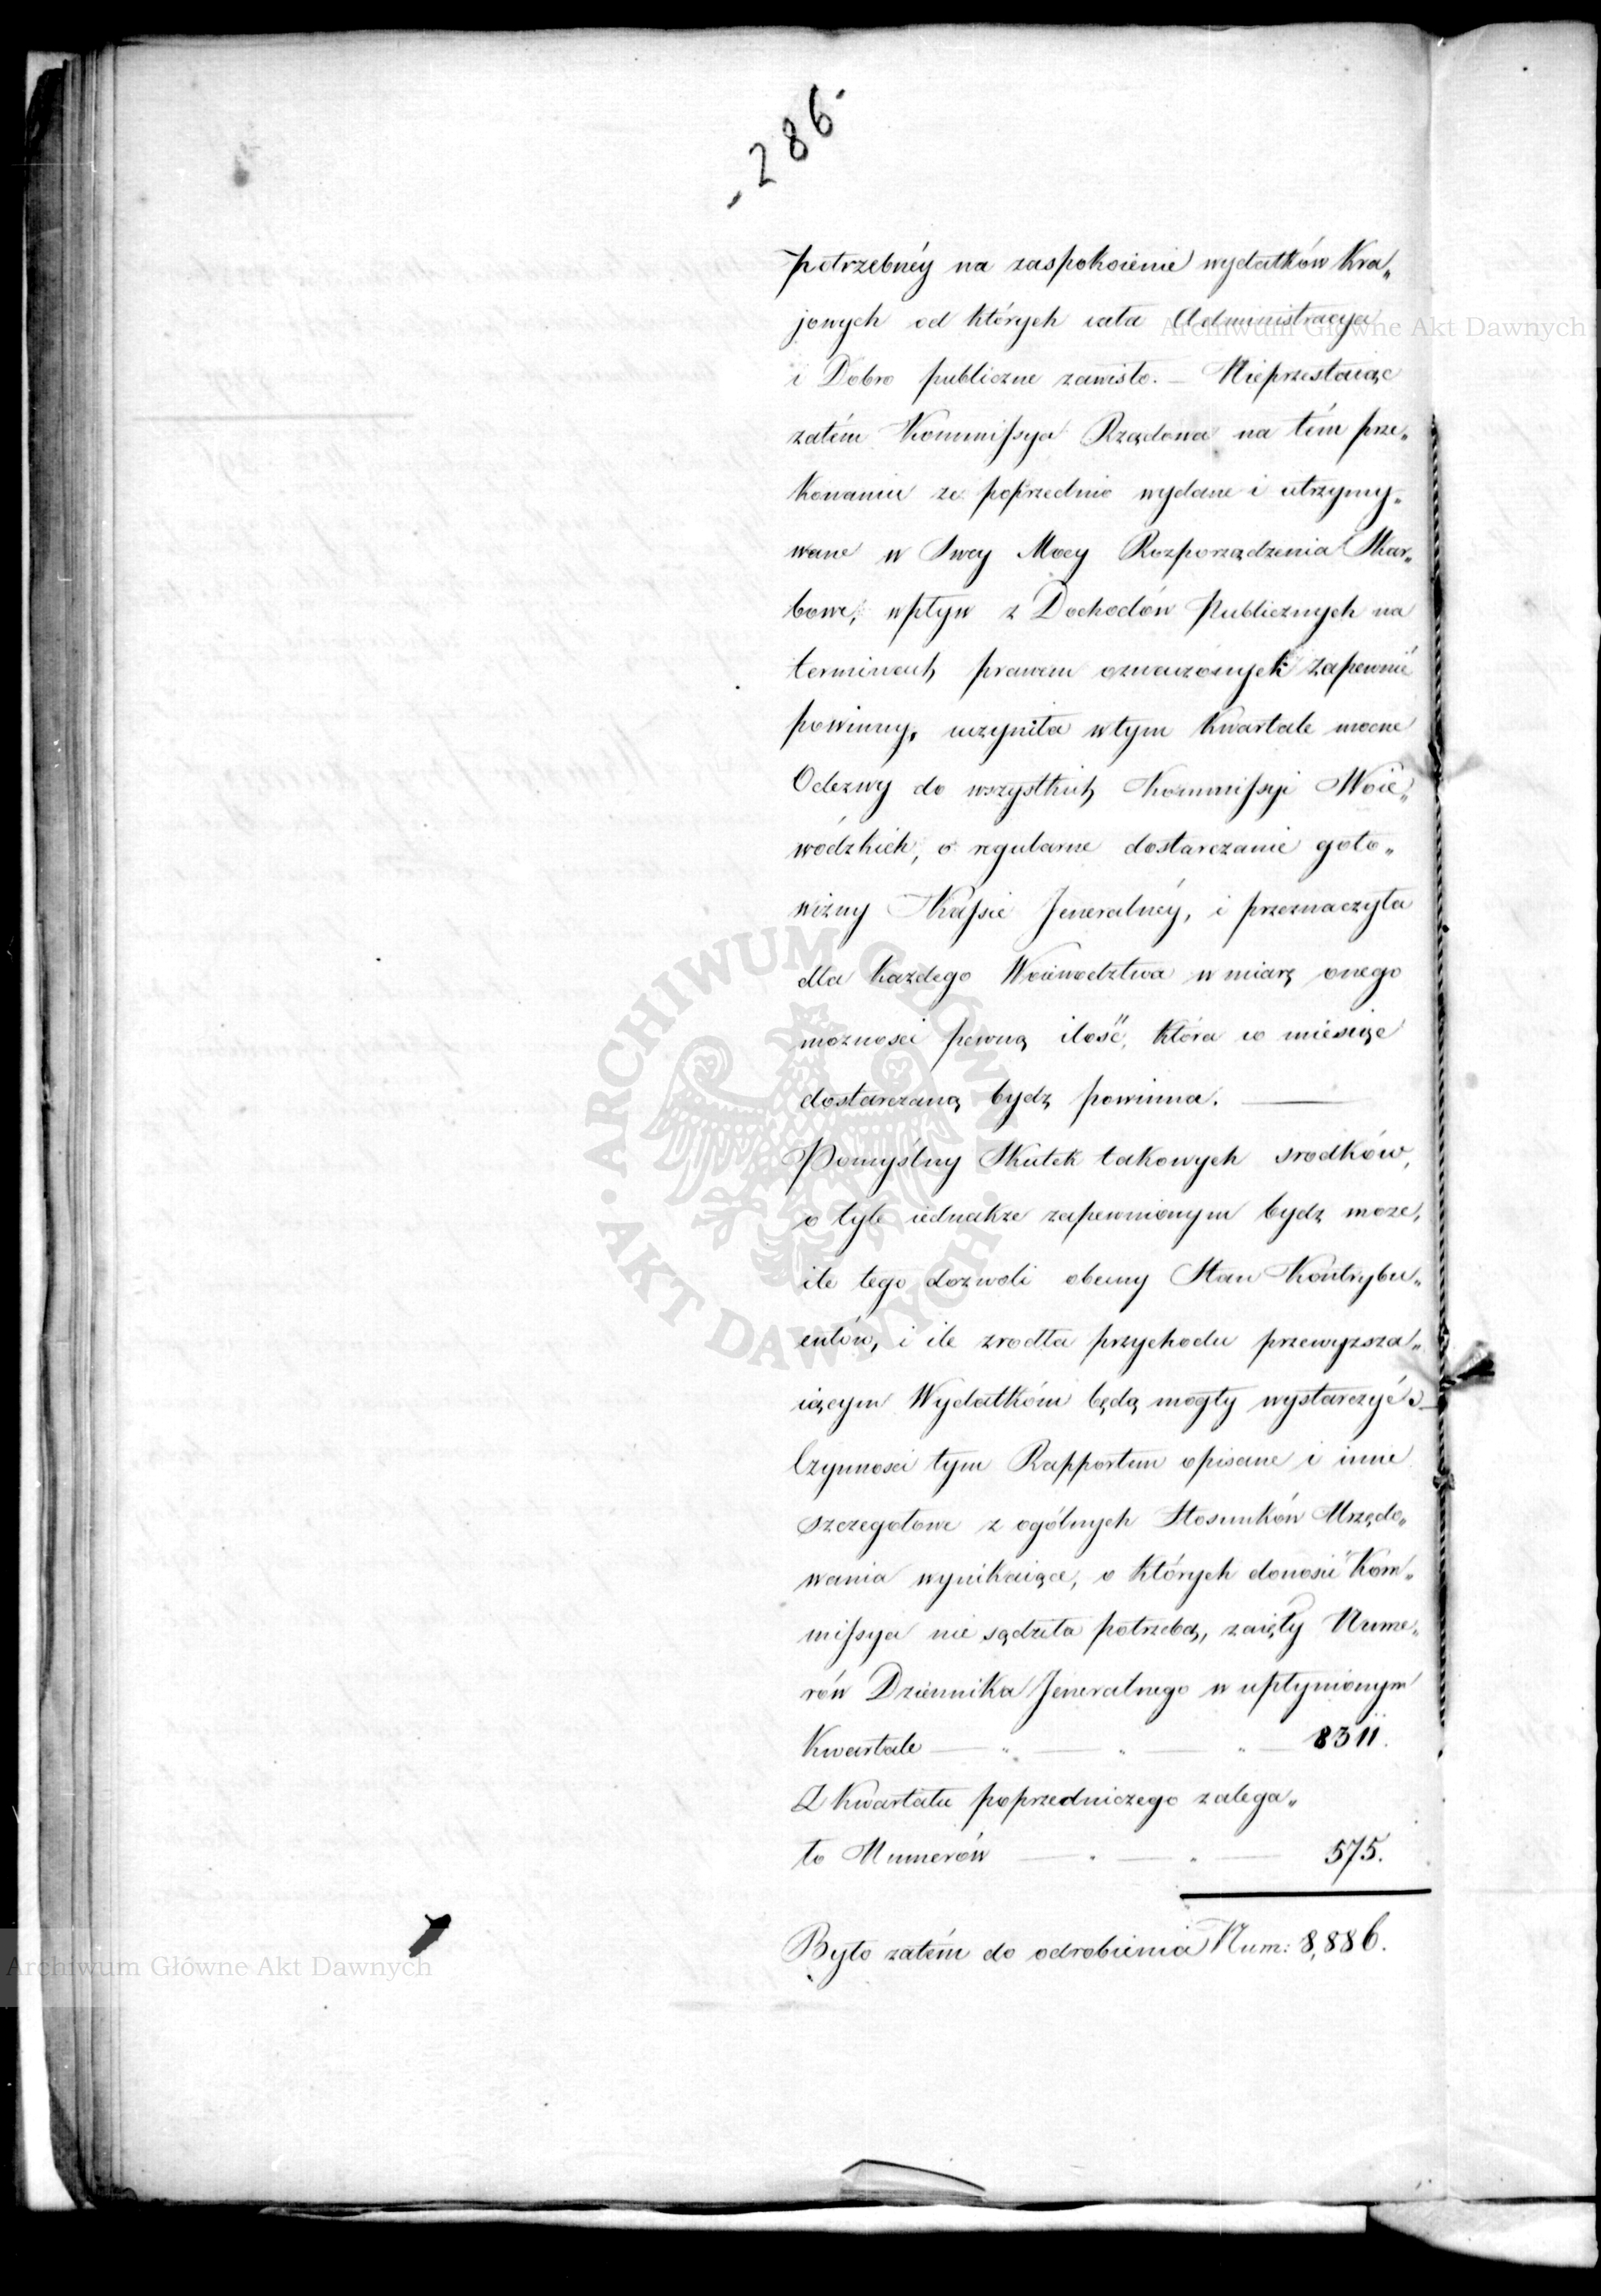 286.
potrzebnéy na zaspokoienie wydatków Kra„
jowych od których cała Administracya
i Dobro publiczne zawisło. — Nieprzestaiąc
zatém Kommissya Rządowa na tém prze„
konaniu ze poprzednio wydane i utrzymy„
wane w Swey Mocy Rozporządzenia Skar„
bowe, wpływ z Dochodów Publicznych na
terminach prawem oznaczonych zapewnić
powinny, uczyniła w tym Kwartale mocne
Odezwy do wszystkich Kommissyi Woie„
wódzkich, o regularne dostarczanie goto„
wizny Kassie Jeneralnéy, i przeznaczyła
dla każdego Woiewodztwa w miarę onego
mozności pewną ilość, która co miesiąc
dostarczaną bydz powinna. —
Pomyślny Skutek takowych srodków,
o tyle iednakze zapewnionym bydz moze,
ile tego dozwoli obecny Stan Kontrybu„
entów, i ile zrodła przychodu przewyzsza„
iącym Wydatkóm będą mogły wystarczyć.
Czynności tym Rapportem opisane i inne
szczegołowe z ogólnych Stosunków Urzędo„
wania wynikaiące, o których donosić Kom„
missya nie sądziła potrzebą, zaięły Nume„
rów Dziennika Jeneralnego w upłynionym
Kwartale — „ — „ — „ — 8311.
Z Kwartału poprzedniczego zalega„
ło Numerów — „ — „ — 575.
Było zatém do odrobienia Num: 8,886.
Archiwum Główne Akt Dawnych
Archiwum Główne Akt Dawnych
ARCHIWUM GŁÓWNE · AKT DAWNYCH ·